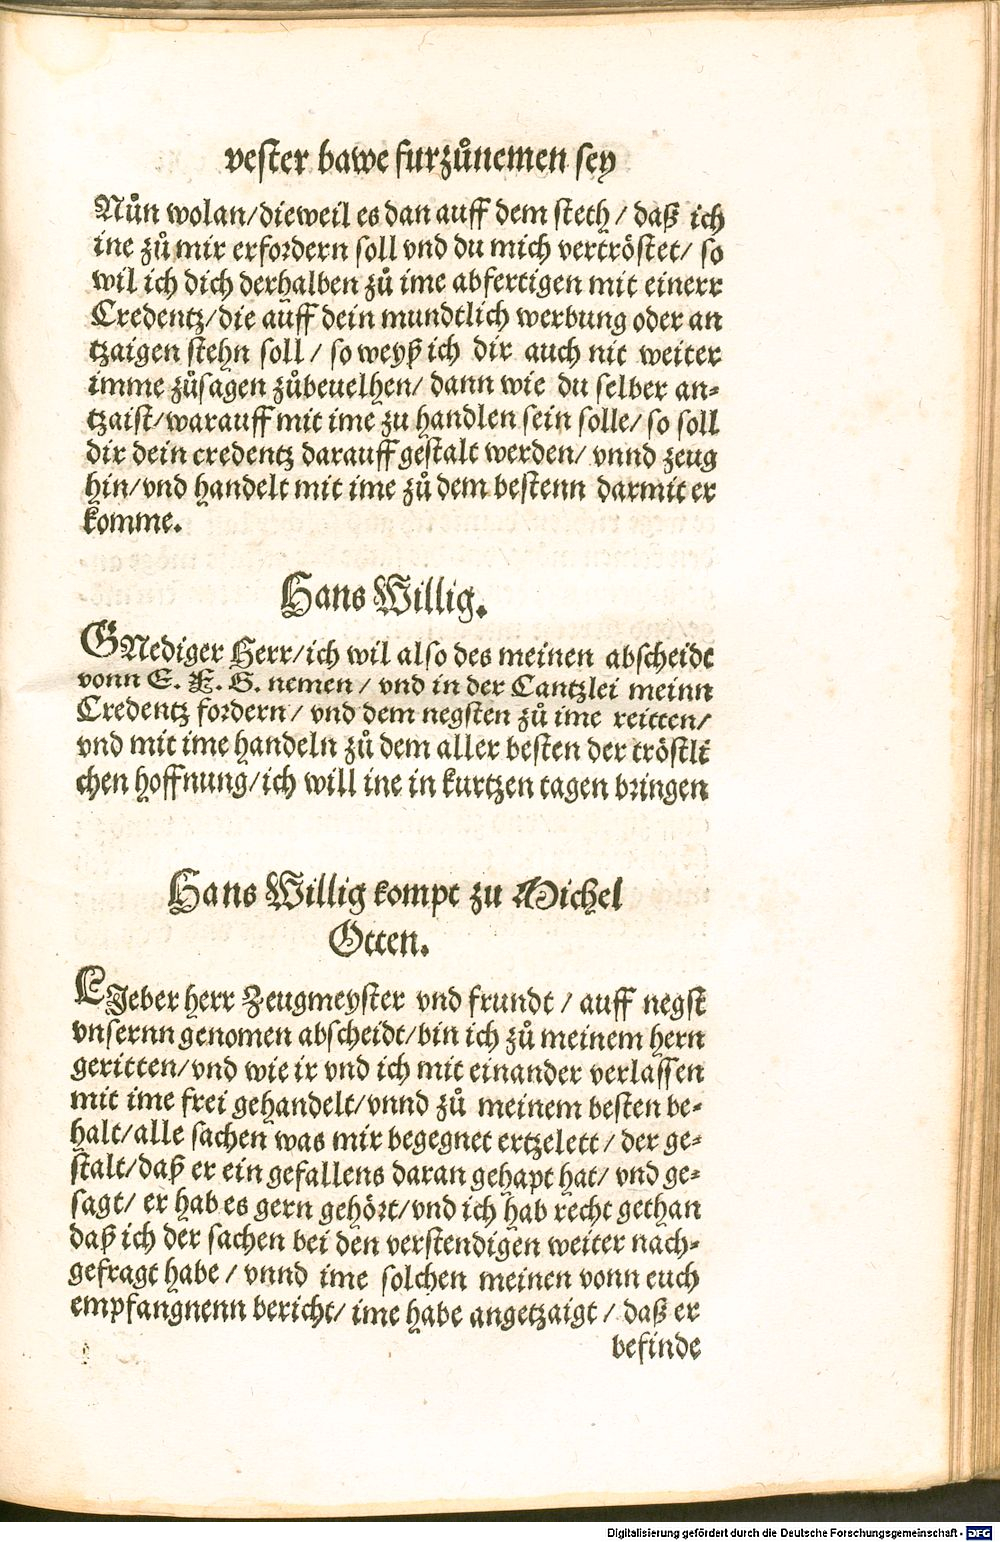 vester bawe furzůnemen sey
Nůn wolan/dieweil es dan auff dem steth / daß ich
ine zů mir erfordern soll vnd du mich vertröstet/ so
wil ich dich derhalben zů ime abfertigen mit einerr
Credentz/die auff dein mundtlich werbung oder an
tzaigen stehn soll / so weyß ich dir auch nit weiter
imme zůsagen zůbeuelhen/ dann wie du selber an-
tzaist/warauff mit ime zu handlen sein solle/ so soll
dir dein credentz darauff gestalt werden/ vnnd zeug
hin/vnd handelt mit ime zů dem bestenn darmit er
komme.
Hans Willig.
GNediger Herr/ich wil also des meinen abscheidt
vonn E. F. G. nemen / vnd in der Cantzlei meinn
Credentz fordern / vnd dem negsten zů ime reitten/
vnd mit ime handeln zů dem aller besten der tröstli
chen hoffnung/ich will ine in kurtzen tagen bringen
Hans Willig kompt zu Michel
Otten.
LIeber herr Zeugmeyster vnd frundt / auff negst
vnsernn genomen abscheidt/bin ich zů meinem hern
geritten/vnd wie ir vnd ich mit einander verlassen
mit ime frei gehandelt/vnnd zů meinem besten be-
halt/alle sachen was mir begegnet ertzelett / der ge-
stalt/daß er ein gefallens daran gehapt hat/ vnd ge-
sagt/ er hab es gern gehört/vnd ich hab recht gethan
daß ich der sachen bei den verstendigen weiter nach-
gefragt habe / vnnd ime solchen meinen vonn euch
empfangnenn bericht/ ime habe angetzaigt / daß er
befinde
Digitalisierung gefördert durch die Deutsche Forschungsgemeinschaft - DFG